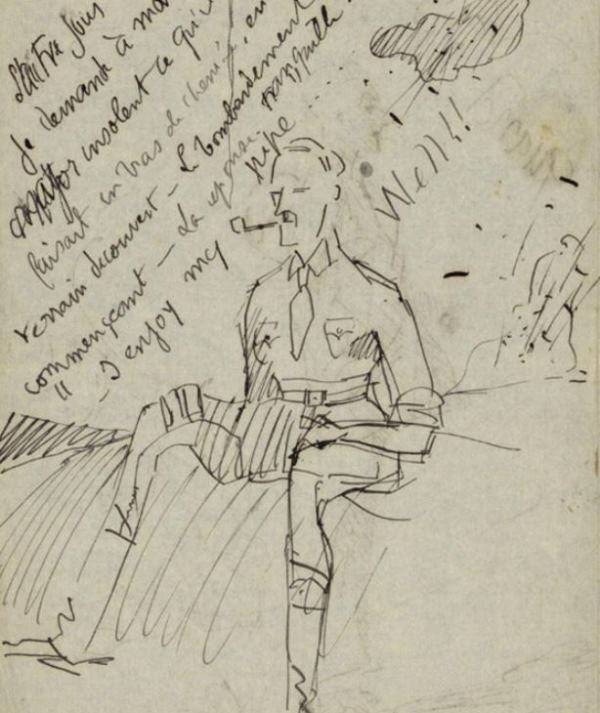 L'autre jour
Je demande à mon
major insolent ce qu'il
faisait en bras de chemise, en
terrain découvert - Le bombardement
commençant - La réponse tranquille :
" - I enjoy my pipe ...
Well!!